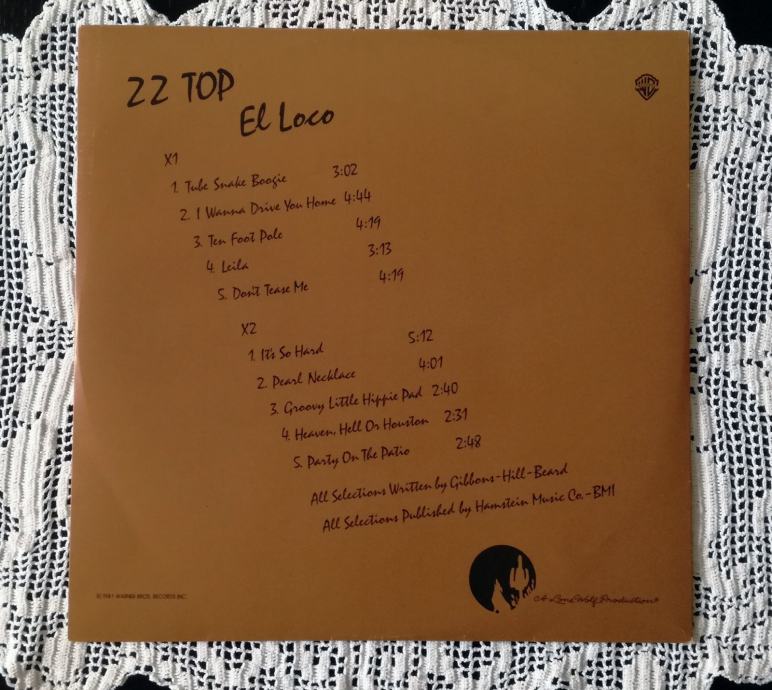 ZZ TOP
El Loco
X1
1. Tube Snake Boogie 3:02
2. I Wanna Drive You Home 4:44
3. Ten Foot Pole 4:19
4. Leila 3:13
5. Don't Tease Me 4:19
X2
1. It's So Hard 5:12
2. Pearl Necklace 4:01
3. Groovy Little Hippie Pad 2:40
4. Heaven, Hell Or Houston 2:31
5. Party On The Patio 2:48
All Selections Written by Gibbons-Hill-Beard
All Selections Published by Hamstein Music Co.-BMI
A Lone Wolf Production®
© 1981 WARNER BROS. RECORDS INC.